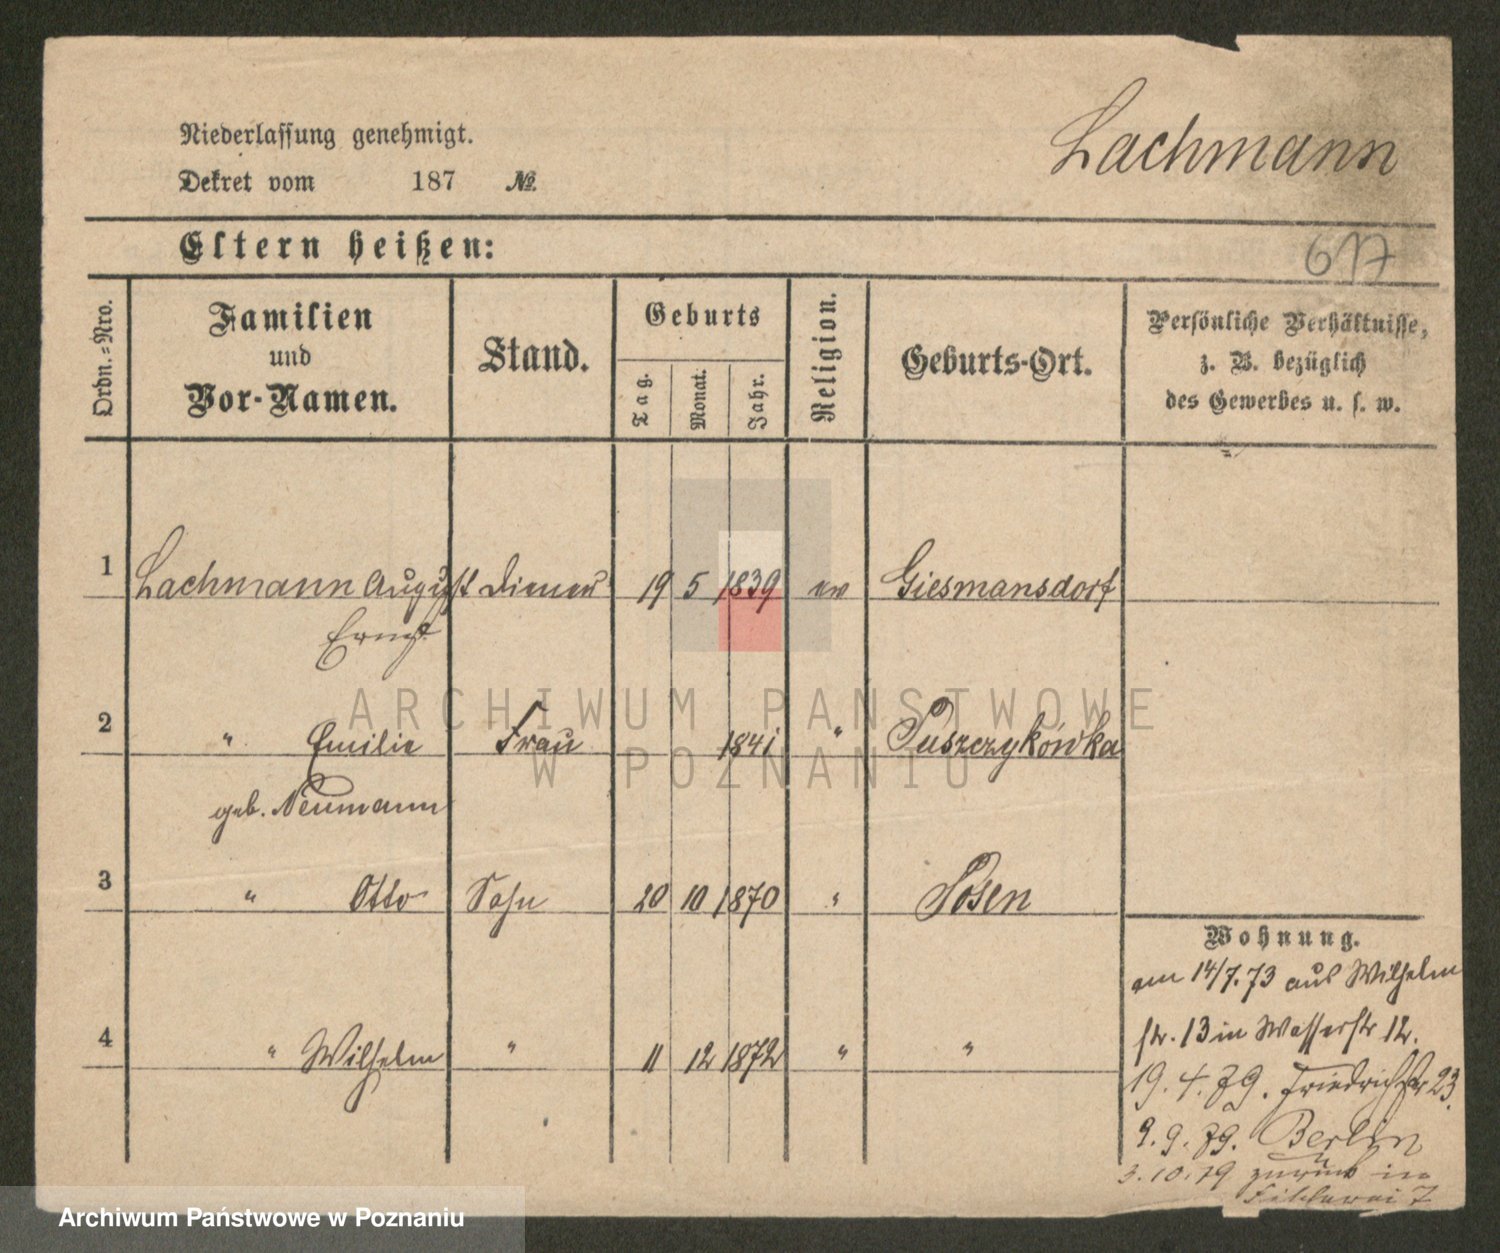 Niederlassung genehmigt.
Dekret vom 187 №.
Lachmann
Eltern heißen:
617
Ordn.=Nro.
Familien
und
Vor-Namen.
Stand.
Geburts
Tag.
Monat.
Jahr.
Religion.
Geburts-Ort.
Persönliche Verhältnisse,
z. B. bezüglich
des Gewerbes u. s. w.
1 Lachmann August Diener 19 5 1839 ev Giesmansdorf
Ernst
2 " Emilie Frau 1841 " Puszczykówka
geb. Neumann
3 " Otto Sohn 20 10 1870 " Posen
4 " Wilhelm " 11 12 1872 " "
Wohnung.
am 14/7.73 aus Wilhelm
str. 13 in Wasserstr 12.
19. 4. 79. Friedrichstr 23.
9. 9. 79. Berlin
3. 10. 79 zurück in
7
ARCHIWUM PAŃSTWOWE
W POZNANIU
Archiwum Państwowe w Poznaniu